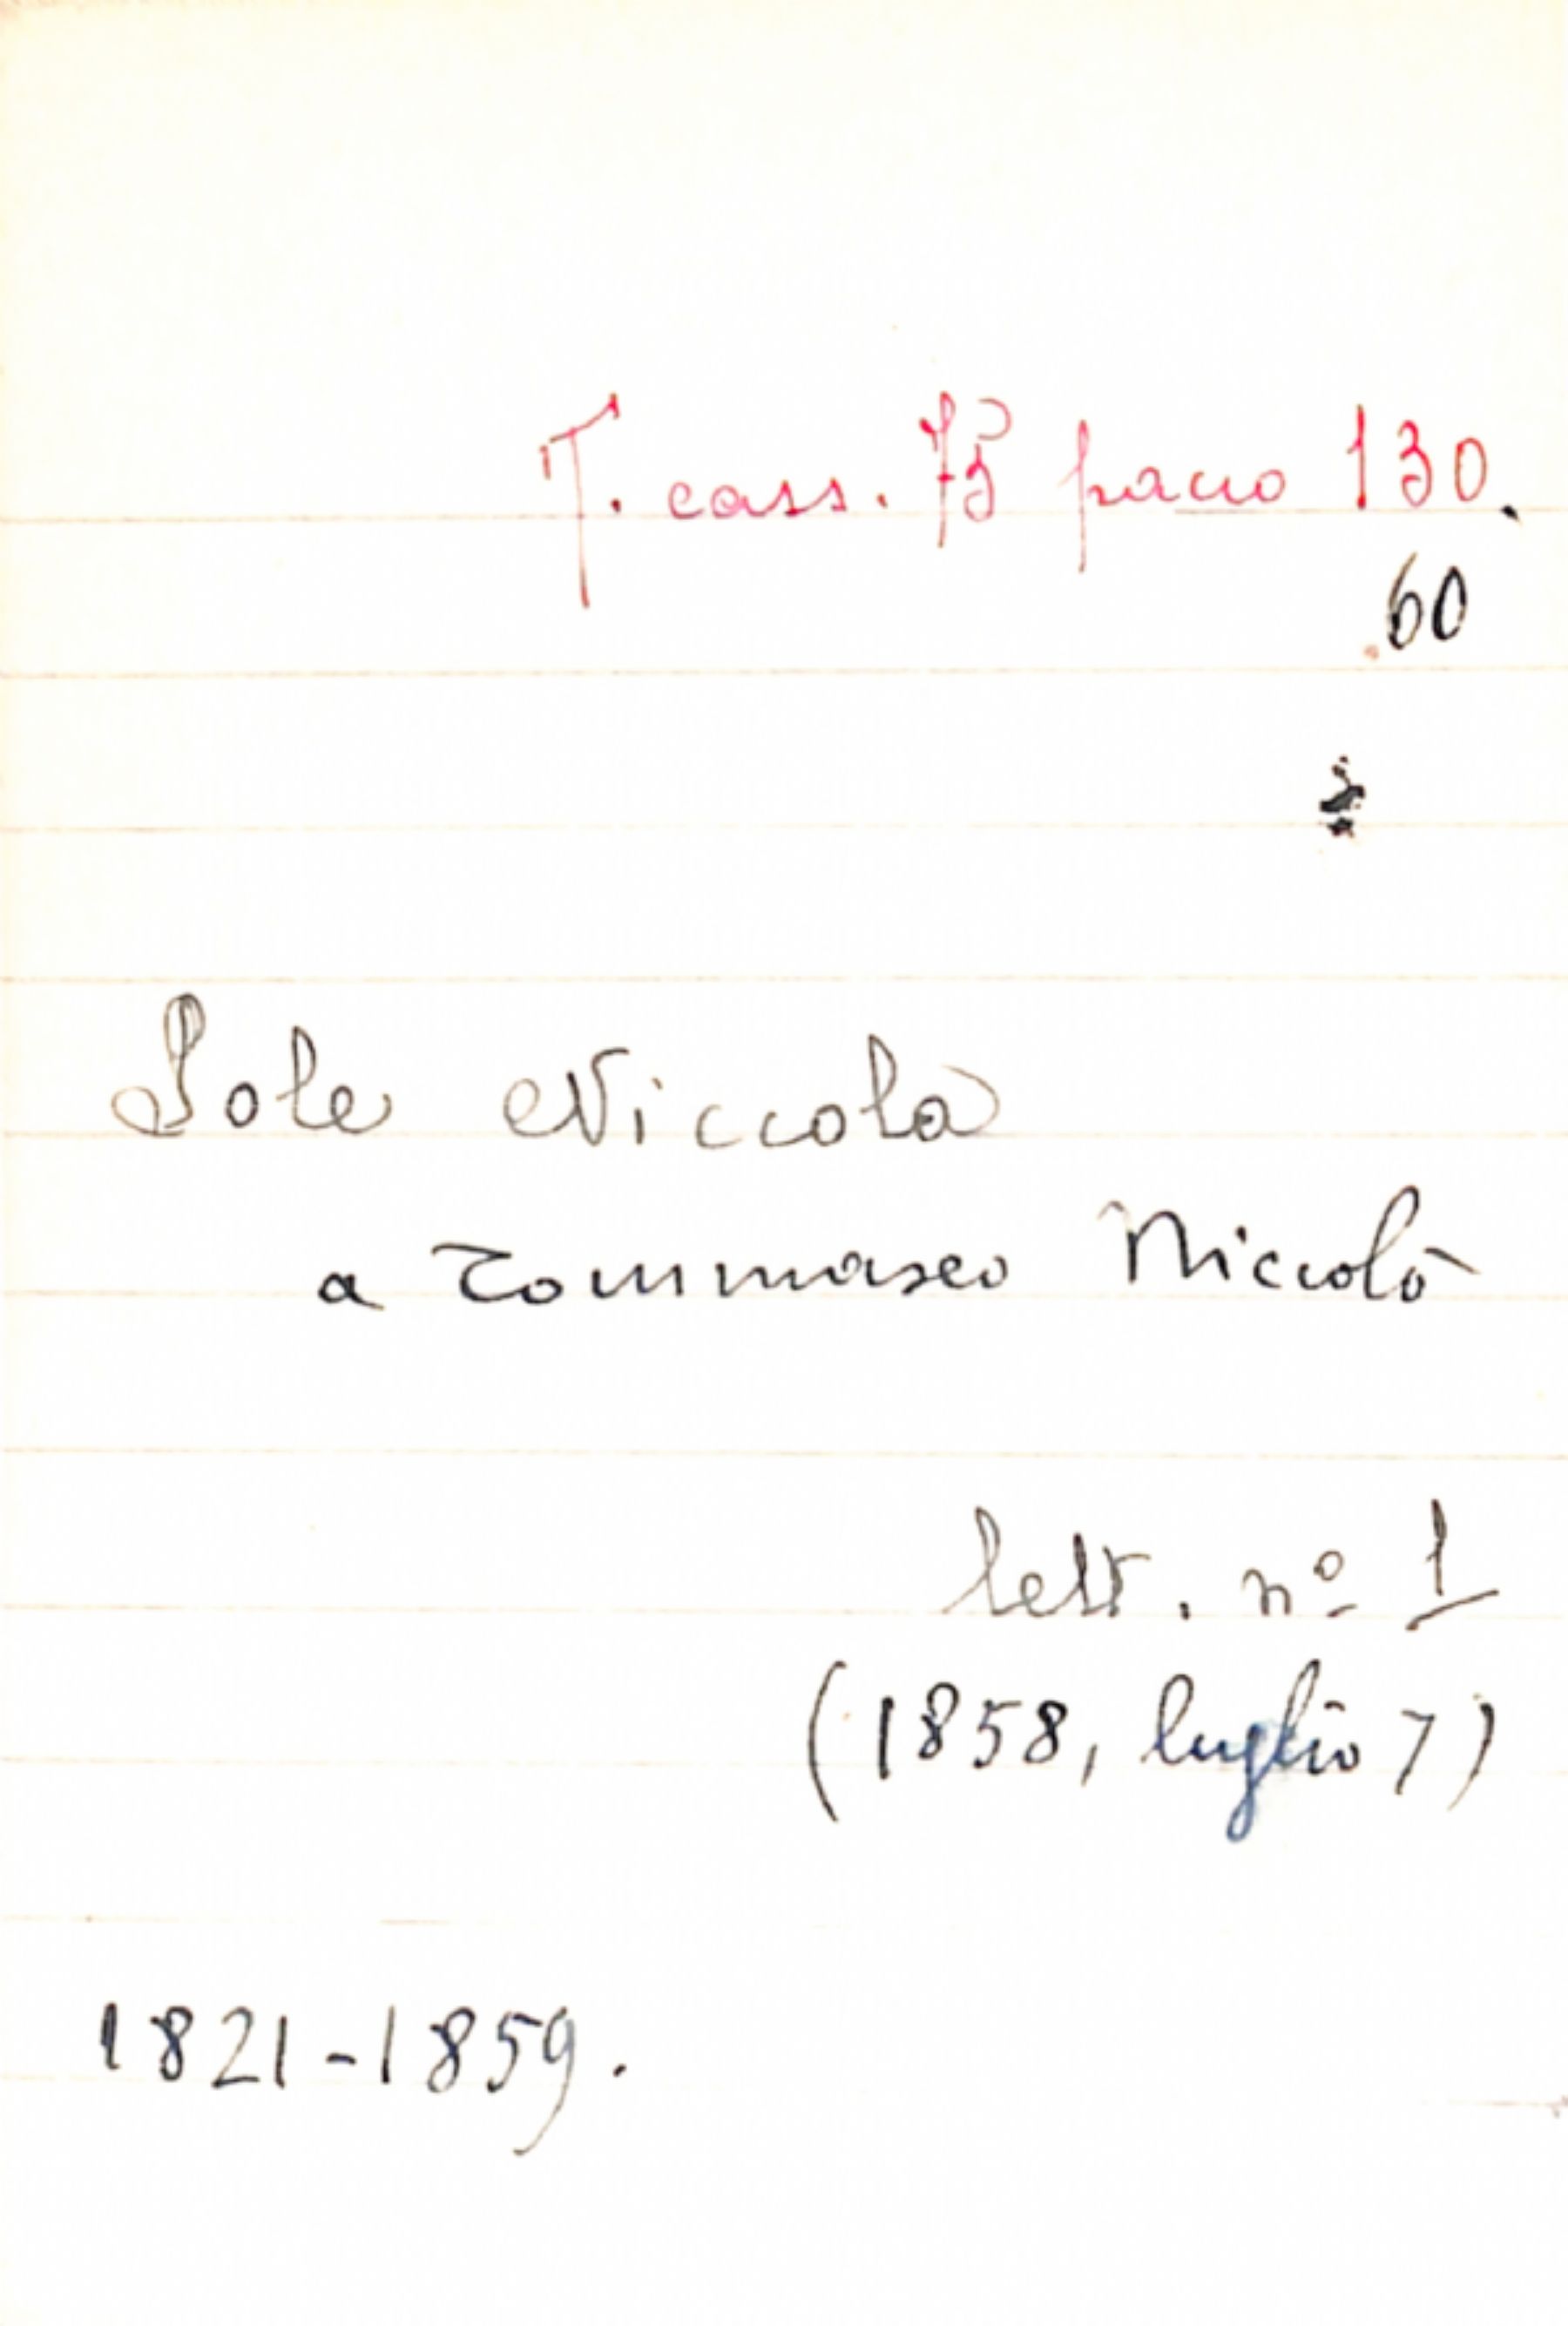 T. cass. 75 pacco 130.
60
Sole Niccola
a Tommaseo Niccolò
lett. nº 1
(1858, luglio 7)
1821-1859.